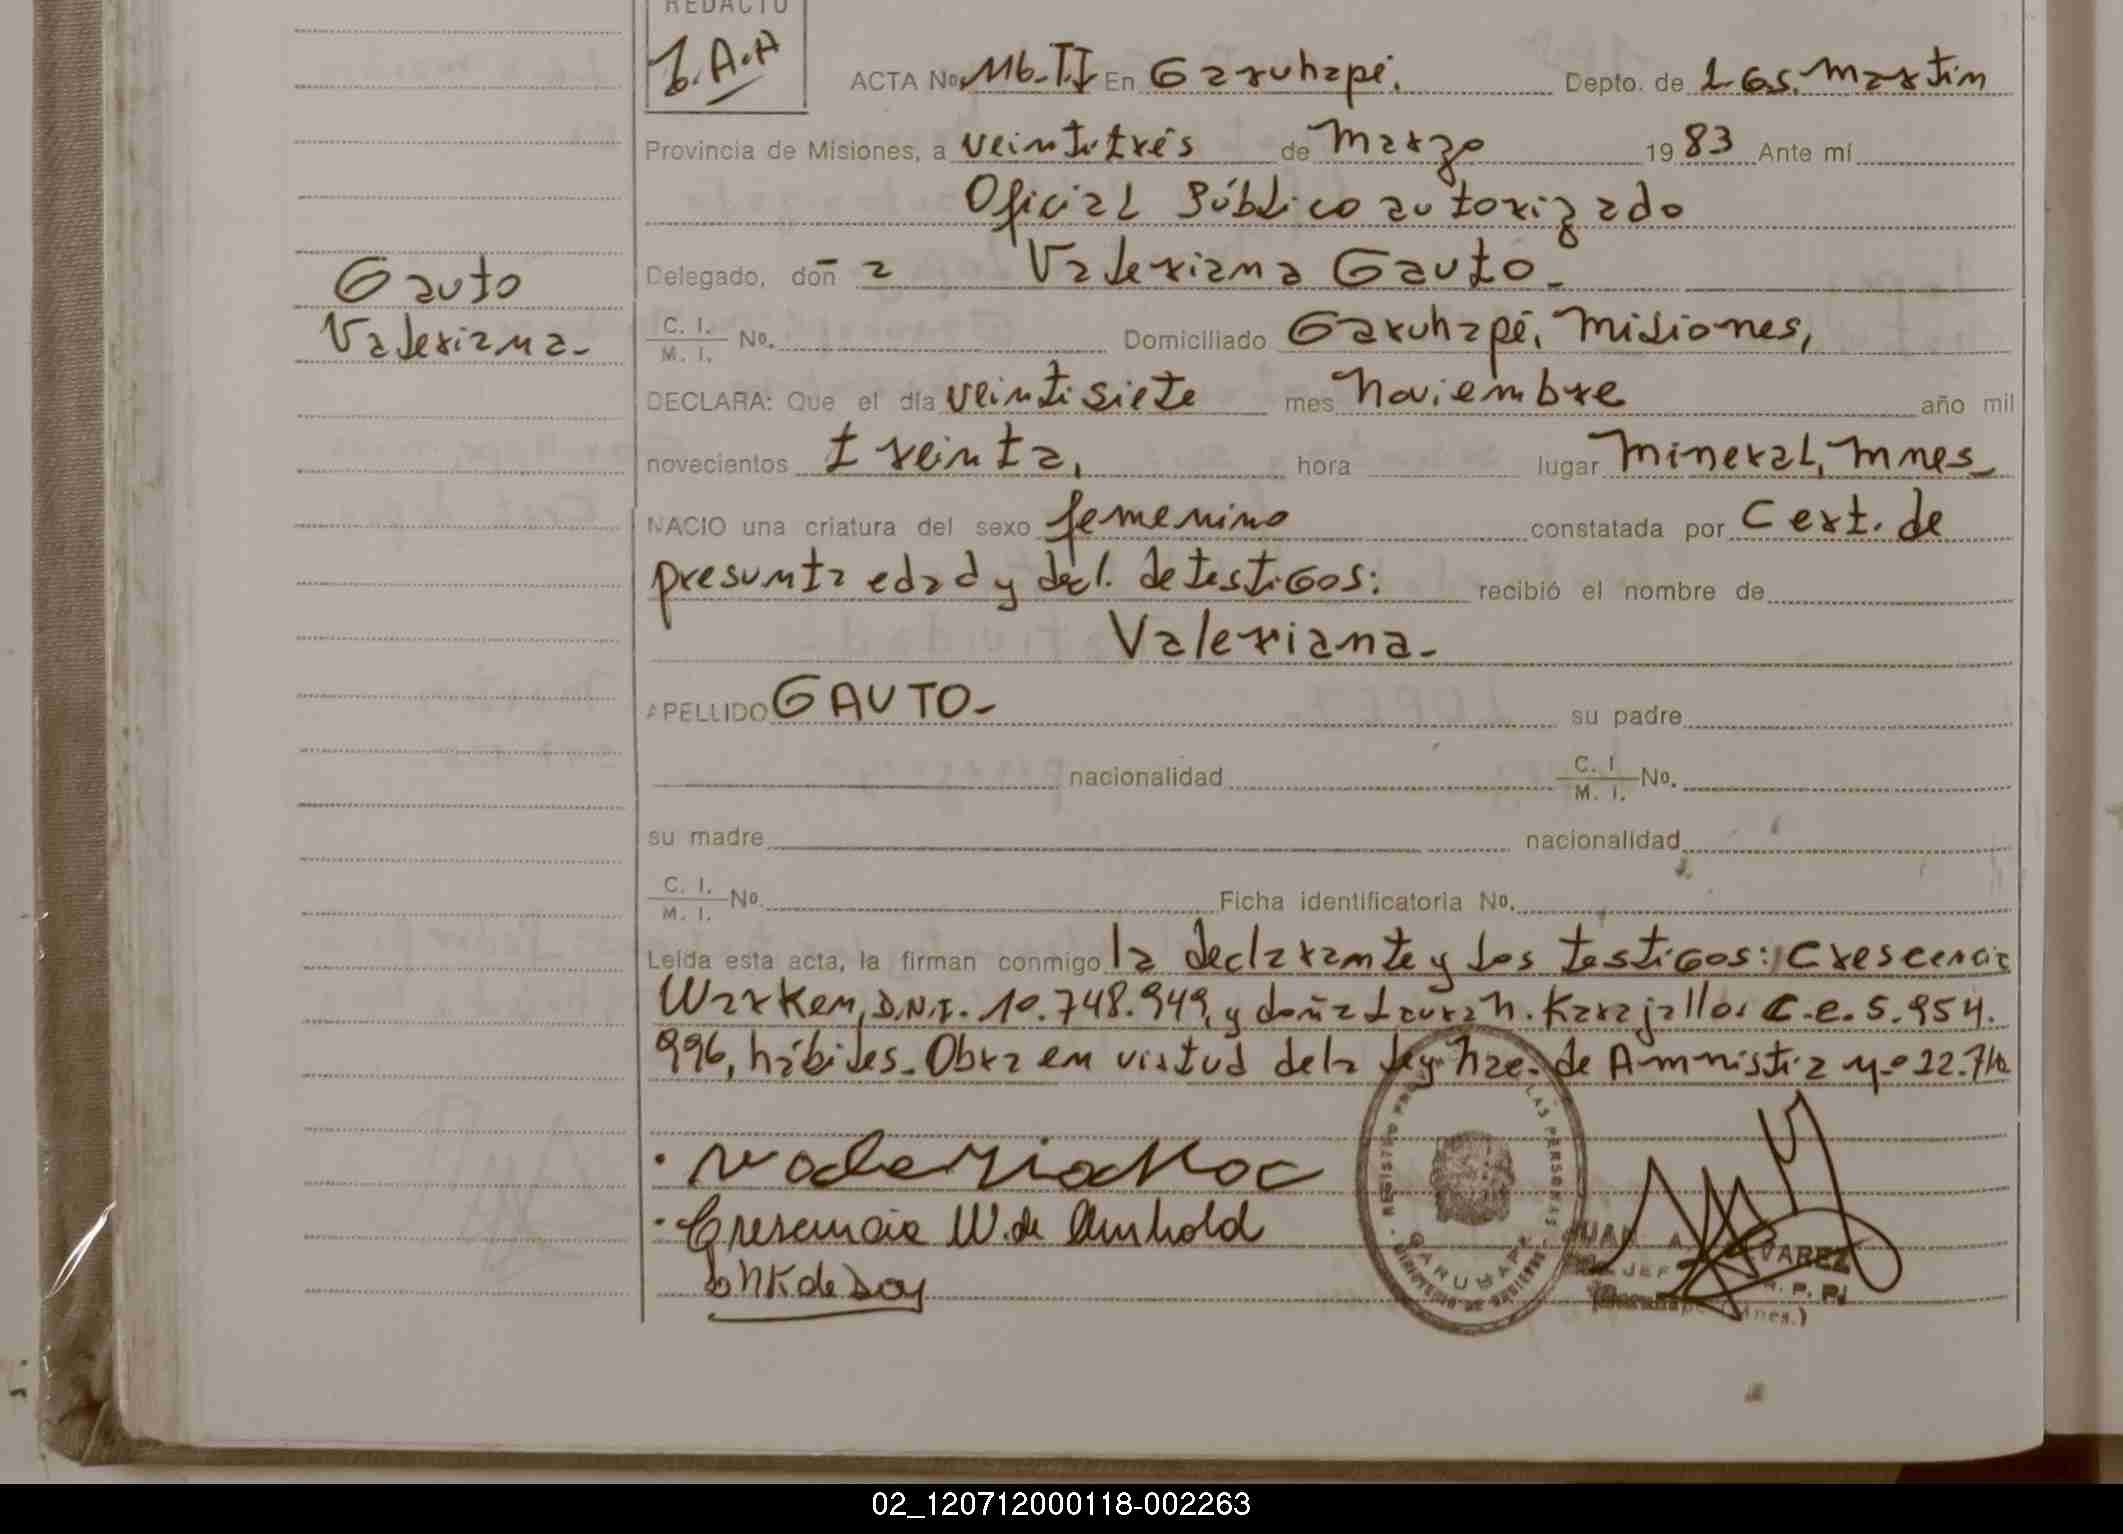 REDACTO
J.A.A
ACTA No. 116-TI En Garuhapé. Depto. de L. G. S. Martín
Provincia de Misiones, a veintitrés de Marzo 1983 Ante mí
Oficial Público autorizado
Delegado, don-a Valeriana Gauto-
Gauto
Valeriana-
C. I. / M. I. No. Domiciliado Garuhapé, Misiones,
DECLARA: Que el día veintisiete mes Noviembre año mil
novecientos treinta, hora lugar Mineral, Mnes
NACIO una criatura del sexo femenino constatada por Cert. de
presunta edad y decl. de testigos: recibió el nombre de
Valeriana-
APELLIDO GAUTO- su padre
nacionalidad C. I. / M. I. No.
su madre nacionalidad
C. I. / M. I. No. Ficha identificatoria No.
Leída esta acta, la firman conmigo la declarante y los testigos: Crescencia
Warken, D.N.I. 10.748.949, y doña Laura N. Karajallo, C.e. 5.954.
996, hábiles. Obra en virtud de la ley Nac. de Amnistia
Cresencia W. de
REGISTRO LAS PERSONAS
GARUHAPE
JUAN A. ALVAREZ
JEF R. P. P.
(Garuhape Mnes.)
02_120712000118-002263